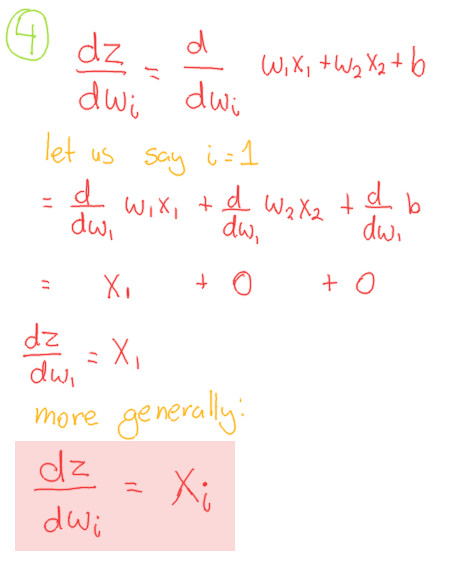 4
dz/dwᵢ = d/dwᵢ w₁x₁ + w₂x₂ + b
let us say i = 1
= d/dw₁ w₁x₁ + d/dw₁ w₂x₂ + d/dw₁ b
= x₁ + 0 + 0
dz/dw₁ = x₁
more generally:
dz/dwᵢ = xᵢ